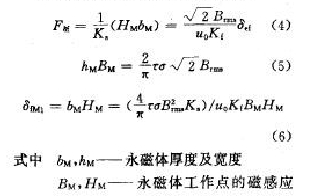 F_{δ1} = \frac{1}{K_s}(H_M b_M) = \frac{\sqrt{2} B_{rms}}{u_0 K_f} δ_{ef} (4)
h_M B_M = \frac{2}{π} τσ \sqrt{2} B_{rms} (5)
= b_M H_M = (\frac{4}{π} τσ B_{rms}^2 K_s) / u_0 K_f B_M H_M
(6)
式中 b_M,h_M——永磁体厚度及宽度
B_M,H_M——永磁体工作点的磁感应